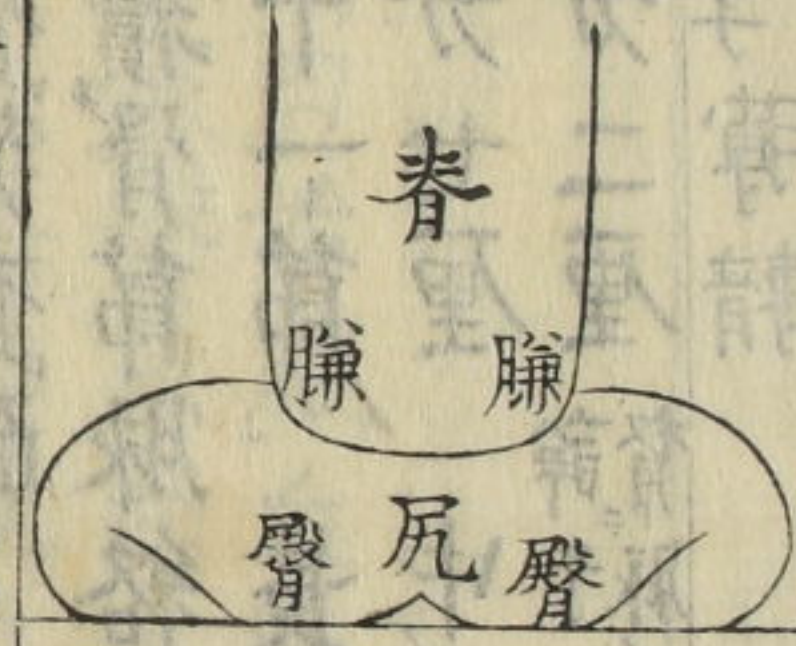 脊
膁 膁
臀 尻 臀